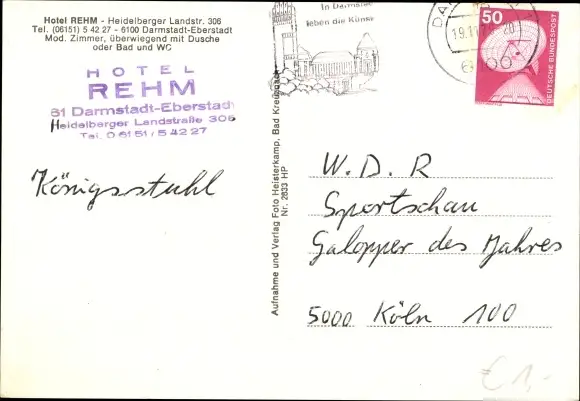 Hotel REHM - Heidelberger Landstr. 306
Tel. (06151) 5 42 27 - 6100 Darmstadt-Eberstadt
Mod. Zimmer, überwiegend mit Dusche
oder Bad und WC
HOTEL
REHM
61 Darmstadt-Eberstadt
Heidelberger Landstraße 306
Tel. 06151/54227
Königsstuhl
Aufnahme und Verlag Foto Heisterkamp, Bad Kreuznach
Nr. 2833 HP
In Darmstadt
leben die Künste
DA
19.11.7
20
6100
50
DEUTSCHE BUNDESPOST
W.D.R
Sportschau
Galopper des Jahres
5000 Köln 100
€ 1,-